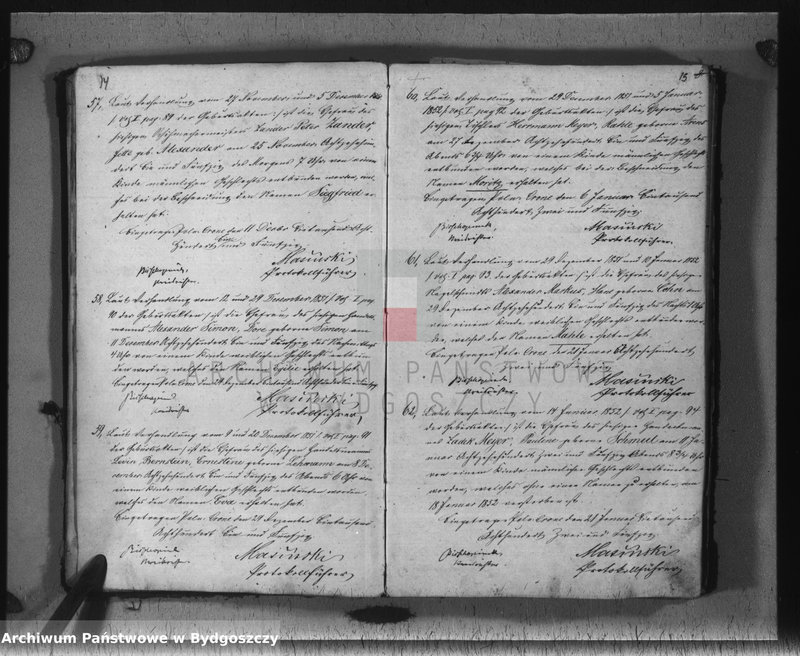 14
57, Laut Verhandlung vom 27 November und 5 December 1851
/ Vol I pag 89 der Geburtsakten / ist die Ehefrau des
hiesigen Lander Peter Zander,
Jette geb: Alexander am 25 November Achtzehnhun
dert Ein und Fünfzig des Morgens 7 Uhr von einem
Kinde männlichen Geschlechts entbunden worden, wel
ches bei der Beschneidung den Namen Siegfried er
halten hat.
Eingetragen Poln: Crone den 11 Decbr Eintausend Acht
Hundert Ein und Fünfzig
Masuński
Protokollführer
58, Laut Verhandlung vom 12 und 29 December 1851 / Vol I pag
90 der Geburtsakten / ist die Ehefrau des hiesigen Handels
manns Alexander Simon, Dore geborne Simon am
11 December Achtzehnhundert Ein und Fünfzig des Nachmittags
4 Uhr von einem Kinde weiblichen Geschlechts entbun
den worden, welches die Namen erhalten hat.
Eingetragen Poln: Crone den 29 Dezember Eintausend Achthundert Ein und Fünfzig
Masuński
Protokollführer
59, Laut Verhandlung vom 9 und 20 December 1851 / Vol I pag. 91
der Geburtsakten / ist die Ehefrau des hiesigen Handelsmanns
Levin Bernstein, Ernestine geborne Lehmann am 8 De
cember Achtzehnhundert Ein und Fünfzig des Abends 6 Uhr von
einem Kinde weiblichen Geschlechts entbunden worden
welches den Namen Eva erhalten hat.
Eingetragen Poln: Crone den 29 Dezember Eintausend
Achthundert Ein und Fünfzig
Masuński
Protokollführer
15
60, Laut Verhandlung vom 29 December 1851 und 5 Januar
1852 / Vol I pag 92 der Geburtsakten / ist die Ehefrau des
hiesigen Tischlers Herrmann Meyer, Mahle geborne
am 27 Dezember Achtzehnhundert Ein und Fünfzig des
Abends 6 Uhr von einem Kinde männlichen Geschlechts
entbunden worden, welches bei der Beschneidung den
Namen Moritz erhalten hat.
Eingetragen Poln: Crone den 6 Januar Eintausend
Achthundert Zwei und Fünfzig.
Masuński
Protokollführer.
61, Laut Verhandlung vom 29 Dezember 1851 und 10 Januar 1852
/ Vol. I pag 93. der Geburtsakten / ist die Ehefrau des hiesigen
Nagelschmidts Alexander Markus, geborne Cohn am
29 Dezember Achtzehnhundert Ein und Fünfzig des Nachts 1 Uhr
von einem Kinde weiblichen Geschlechts entbunden wor
den, welches den Namen Mahle erhalten hat.
Eingetragen Poln: Crone den 21 Januar Achtzehnhundert
Zwei und Fünfzig
Masuński
Protokollführer
62, Laut Verhandlung vom 14 Januar 1852 / Vol I pag. 94
der Geburtsakten / ist die Ehefrau des hiesigen Handelsman
nes Meyer, Pauline geborne Schmul am 11 Ja
nuar Achtzehnhundert Zwei und Fünfzig Abends 8 Uhr
von einem Kinde männlichen Geschlechts entbunden
worden, welches ohne einen Namen zu erhalten, am
18 Januar 1852 verstorben ist.
Eingetragen Poln: Crone den 21 Januar Eintausend
Achthundert Zwei und Fünfzig
Masuński
Protokollführer
ARCHIWUM PAŃSTWOWE
W BYDGOSZCZY
Archiwum Państwowe w Bydgoszczy